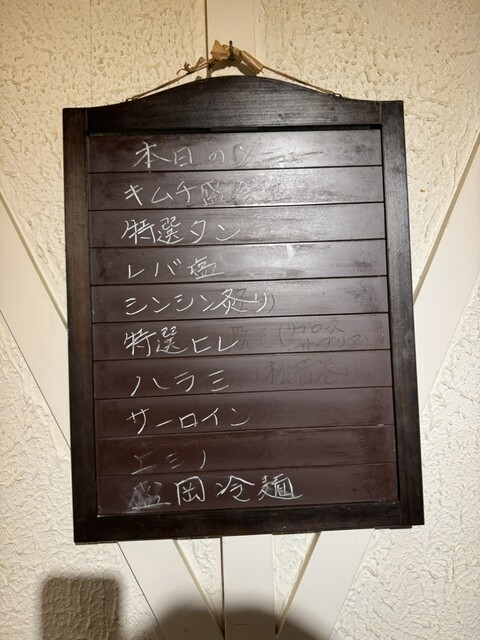 本日の
キムチ盛
特選タン
レバ塩
シンシン炙り
特選ヒレ
ハラミ
サーロイン
盛岡冷麺